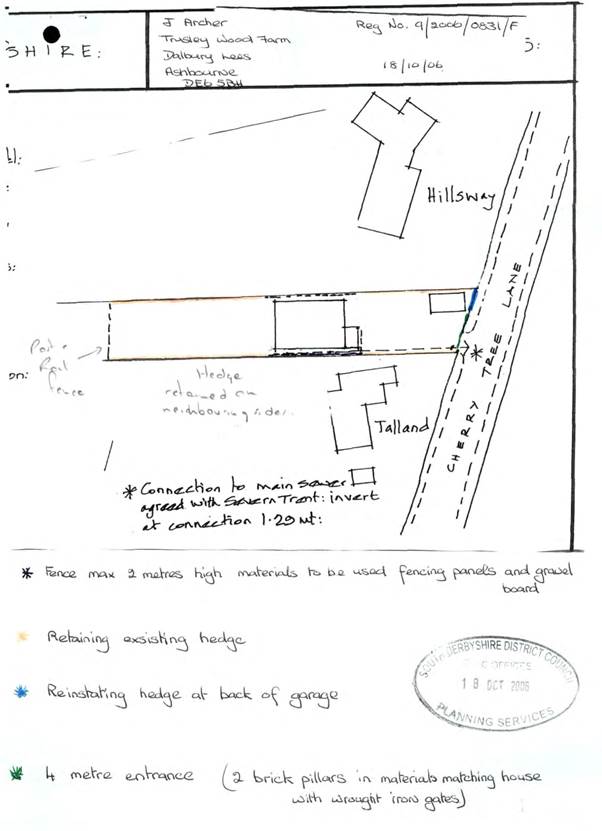 SHIRE:
J Archer
Trusley Wood Farm
Dalbury Lees
Ashbourne
DE6 5BH
Reg No. 9/2006/0831/F
18/10/06
Hillsway
CHERRY TREE LANE
Post +
Rail
fence
on:
Hedge
retained on
neighbouring sides.
Talland
* Connection to main sewer
agreed with Severn Trent: invert
at connection 1.29 mt:
* Fence max 2 metres high materials to be used fencing panels and gravel
board
* Retaining exsisting hedge
* Reinstating hedge at back of garage
* 4 metre entrance (2 brick pillars in materials matching house
with wrought iron gates)
SOUTH DERBYSHIRE DISTRICT COUNCIL
OFFICES
18 OCT 2006
PLANNING SERVICES